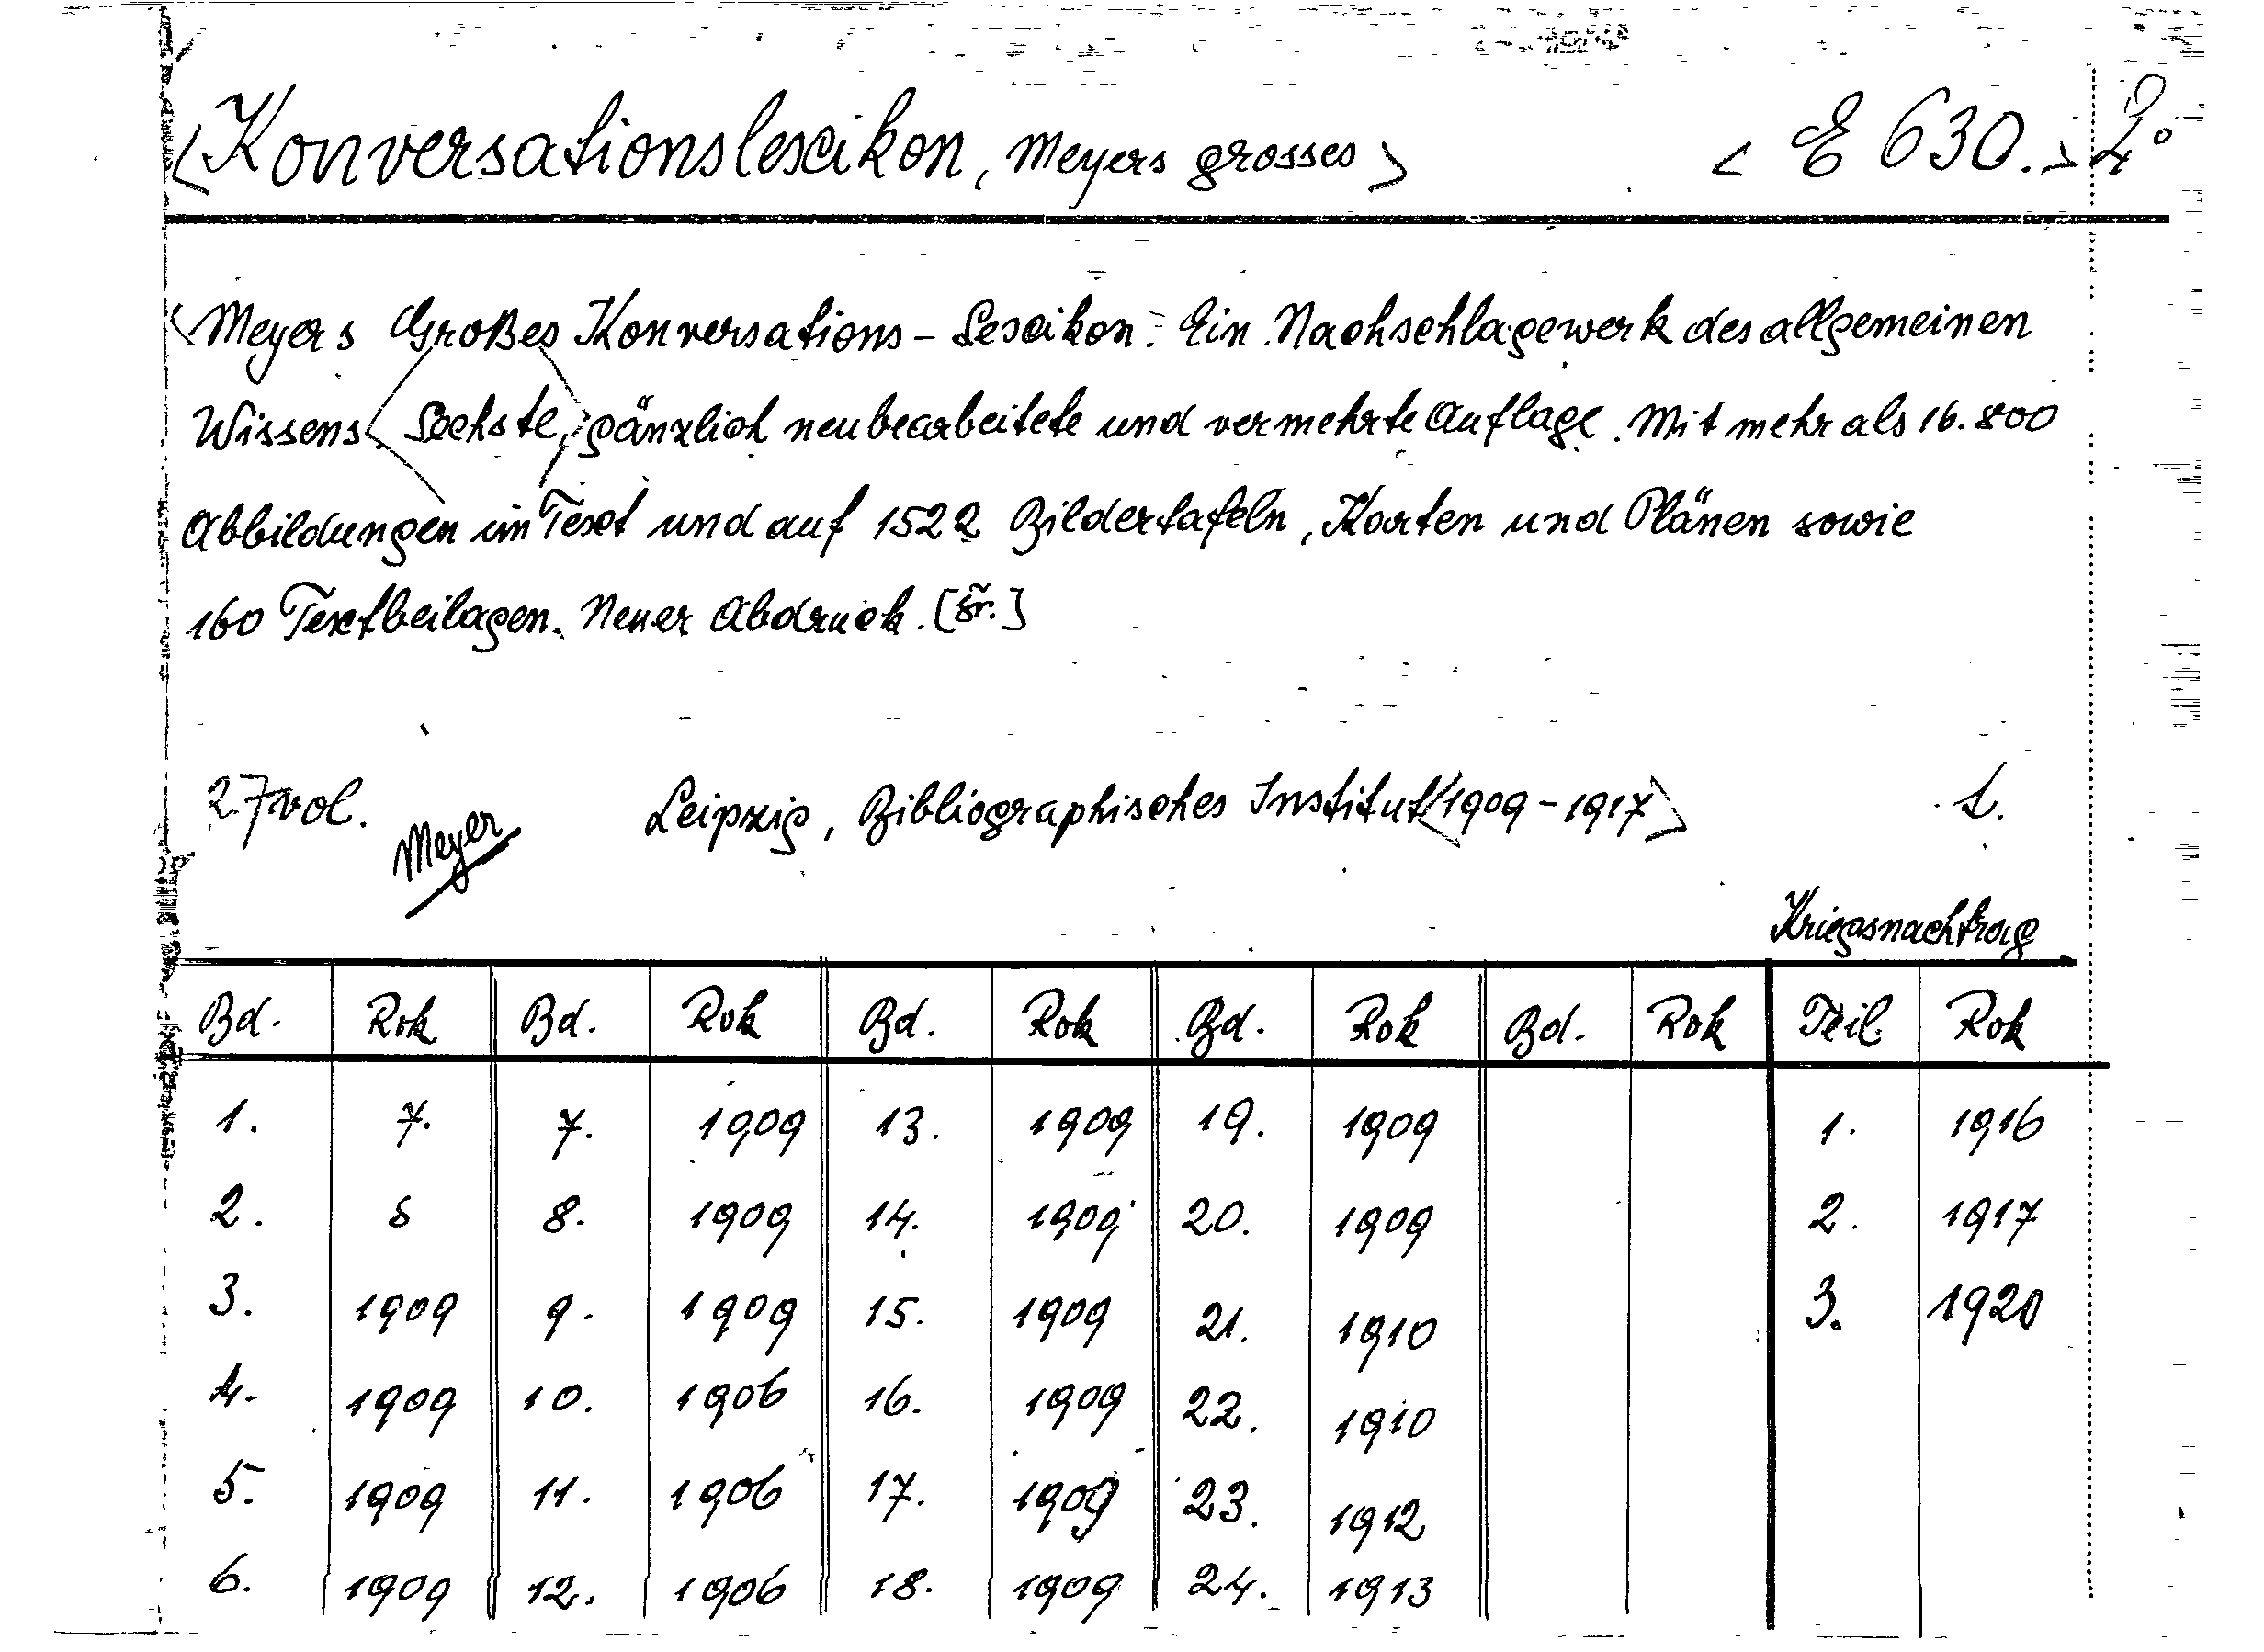 <Konversationslexikon, Meyers grosses> <E 630.> 2°
<Meyers Großes Konversations-Lexikon. Ein Nachschlagewerk des allgemeinen
Wissens. <Sechste,> gänzlich neubearbeitete und vermehrte Auflage. Mit mehr als 16.800
Abbildungen im Text und auf 1522 Bildertafeln, Karten und Plänen sowie
160 Textbeilagen. Neuer Abdruck. [šr.]
27 vol. Meyer Leipzig, Bibliographisches Institut <1909-1917> L.
Kriegsnachtrag
Bd. Rok Bd. Rok Bd. Rok Bd. Rok Bd. Rok Teil Rok
1. 7. 7. 1909 13. 1909 19. 1909 1. 1916
2. 8. 1909 14. 1909 20. 1909 2. 1917
3. 1909 9. 1909 15. 1909 21. 1910 3. 1920
4. 1909 10. 1906 16. 1909 22. 1910
5. 1909 11. 1906 17. 1909 23. 1912
6. 1909 12. 1906 18. 1909 24. 1913